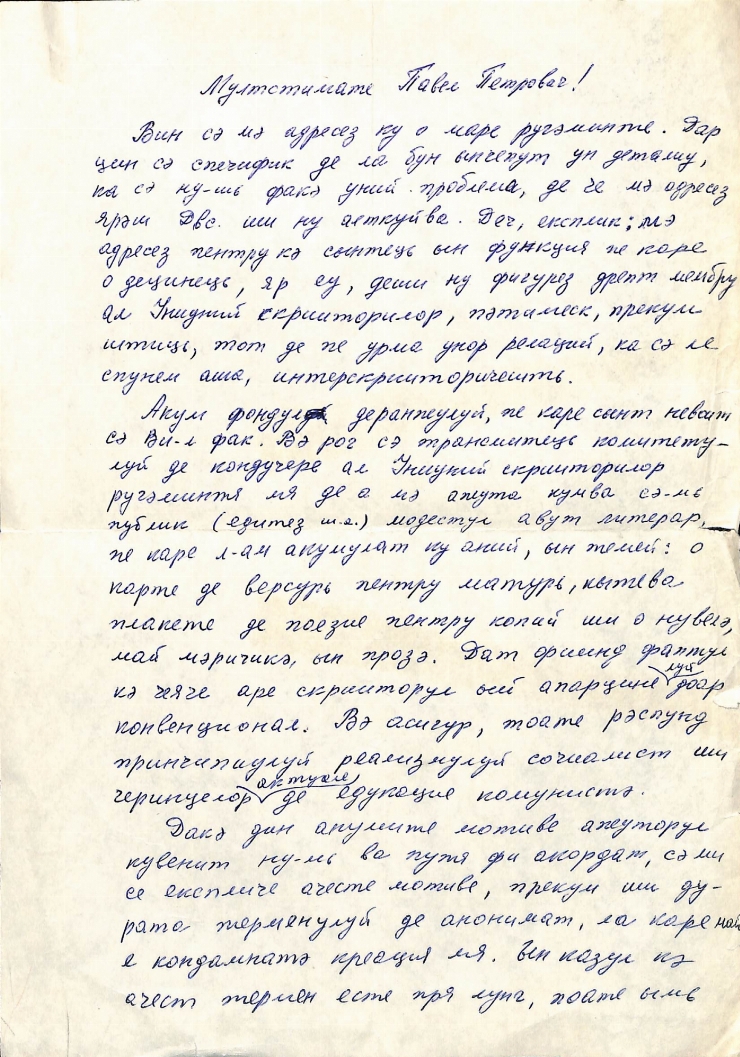 Мултстимате Павел Петрович!
Вин сэ мэ адресез ку о маре ругэминте. Дар
цин сэ спечифик де ла бун ынчепут ун деталиу,
ка сэ ну-шь факэ уний проблеме, де че мэ адресез
яраш Двс. ши ну алткуйва. Деч, експлик: мэ
адресез пентру кэ сынтець ын функция пе каре
о децинець, яр еу, деши ну фигурез дрепт мембру
ал Униуний скрииторилор, пэтимеск, прекум
штиць, тот де пе урма унор релаций, ка сэ ле
спунем аша, интерскрииторичешть.
Акум фондул деранжулуй, пе каре сынт невоит
сэ Ви-л фак. Вэ рог сэ трансмитець комитету-
луй де кондучере ал Униуний скрииторилор
ругэминтя мя де а мэ ажута кумва сэ-мь
публик (едитез ш.а.) модестул авут литерар,
пе каре л-ам акумулат ку аний, ын темей: о
карте де версурь пентру матурь, кытева
плакете де поезие пентру копий ши о нувелэ,
май мэричикэ, ын прозэ. Дат фиинд фаптул
кэ чеяче аре скрииторул ый апарцине луй доар
конвенционал. Вэ асигур, тоате рэспунд
принчипиулуй реализмулуй сочиалист ши
черинцелор актуале де едукацие комунистэ.
Дакэ дин анумите мотиве ажуторул
кувенит ну-мь ва путя фи акордат, сэ ми
се експличе ачесте мотиве, прекум ши ду-
рата терменулуй де анонимат, ла каре май
е кондамнатэ креация мя. Ын казул кэ
ачест термен есте пря лунг, поате ымь